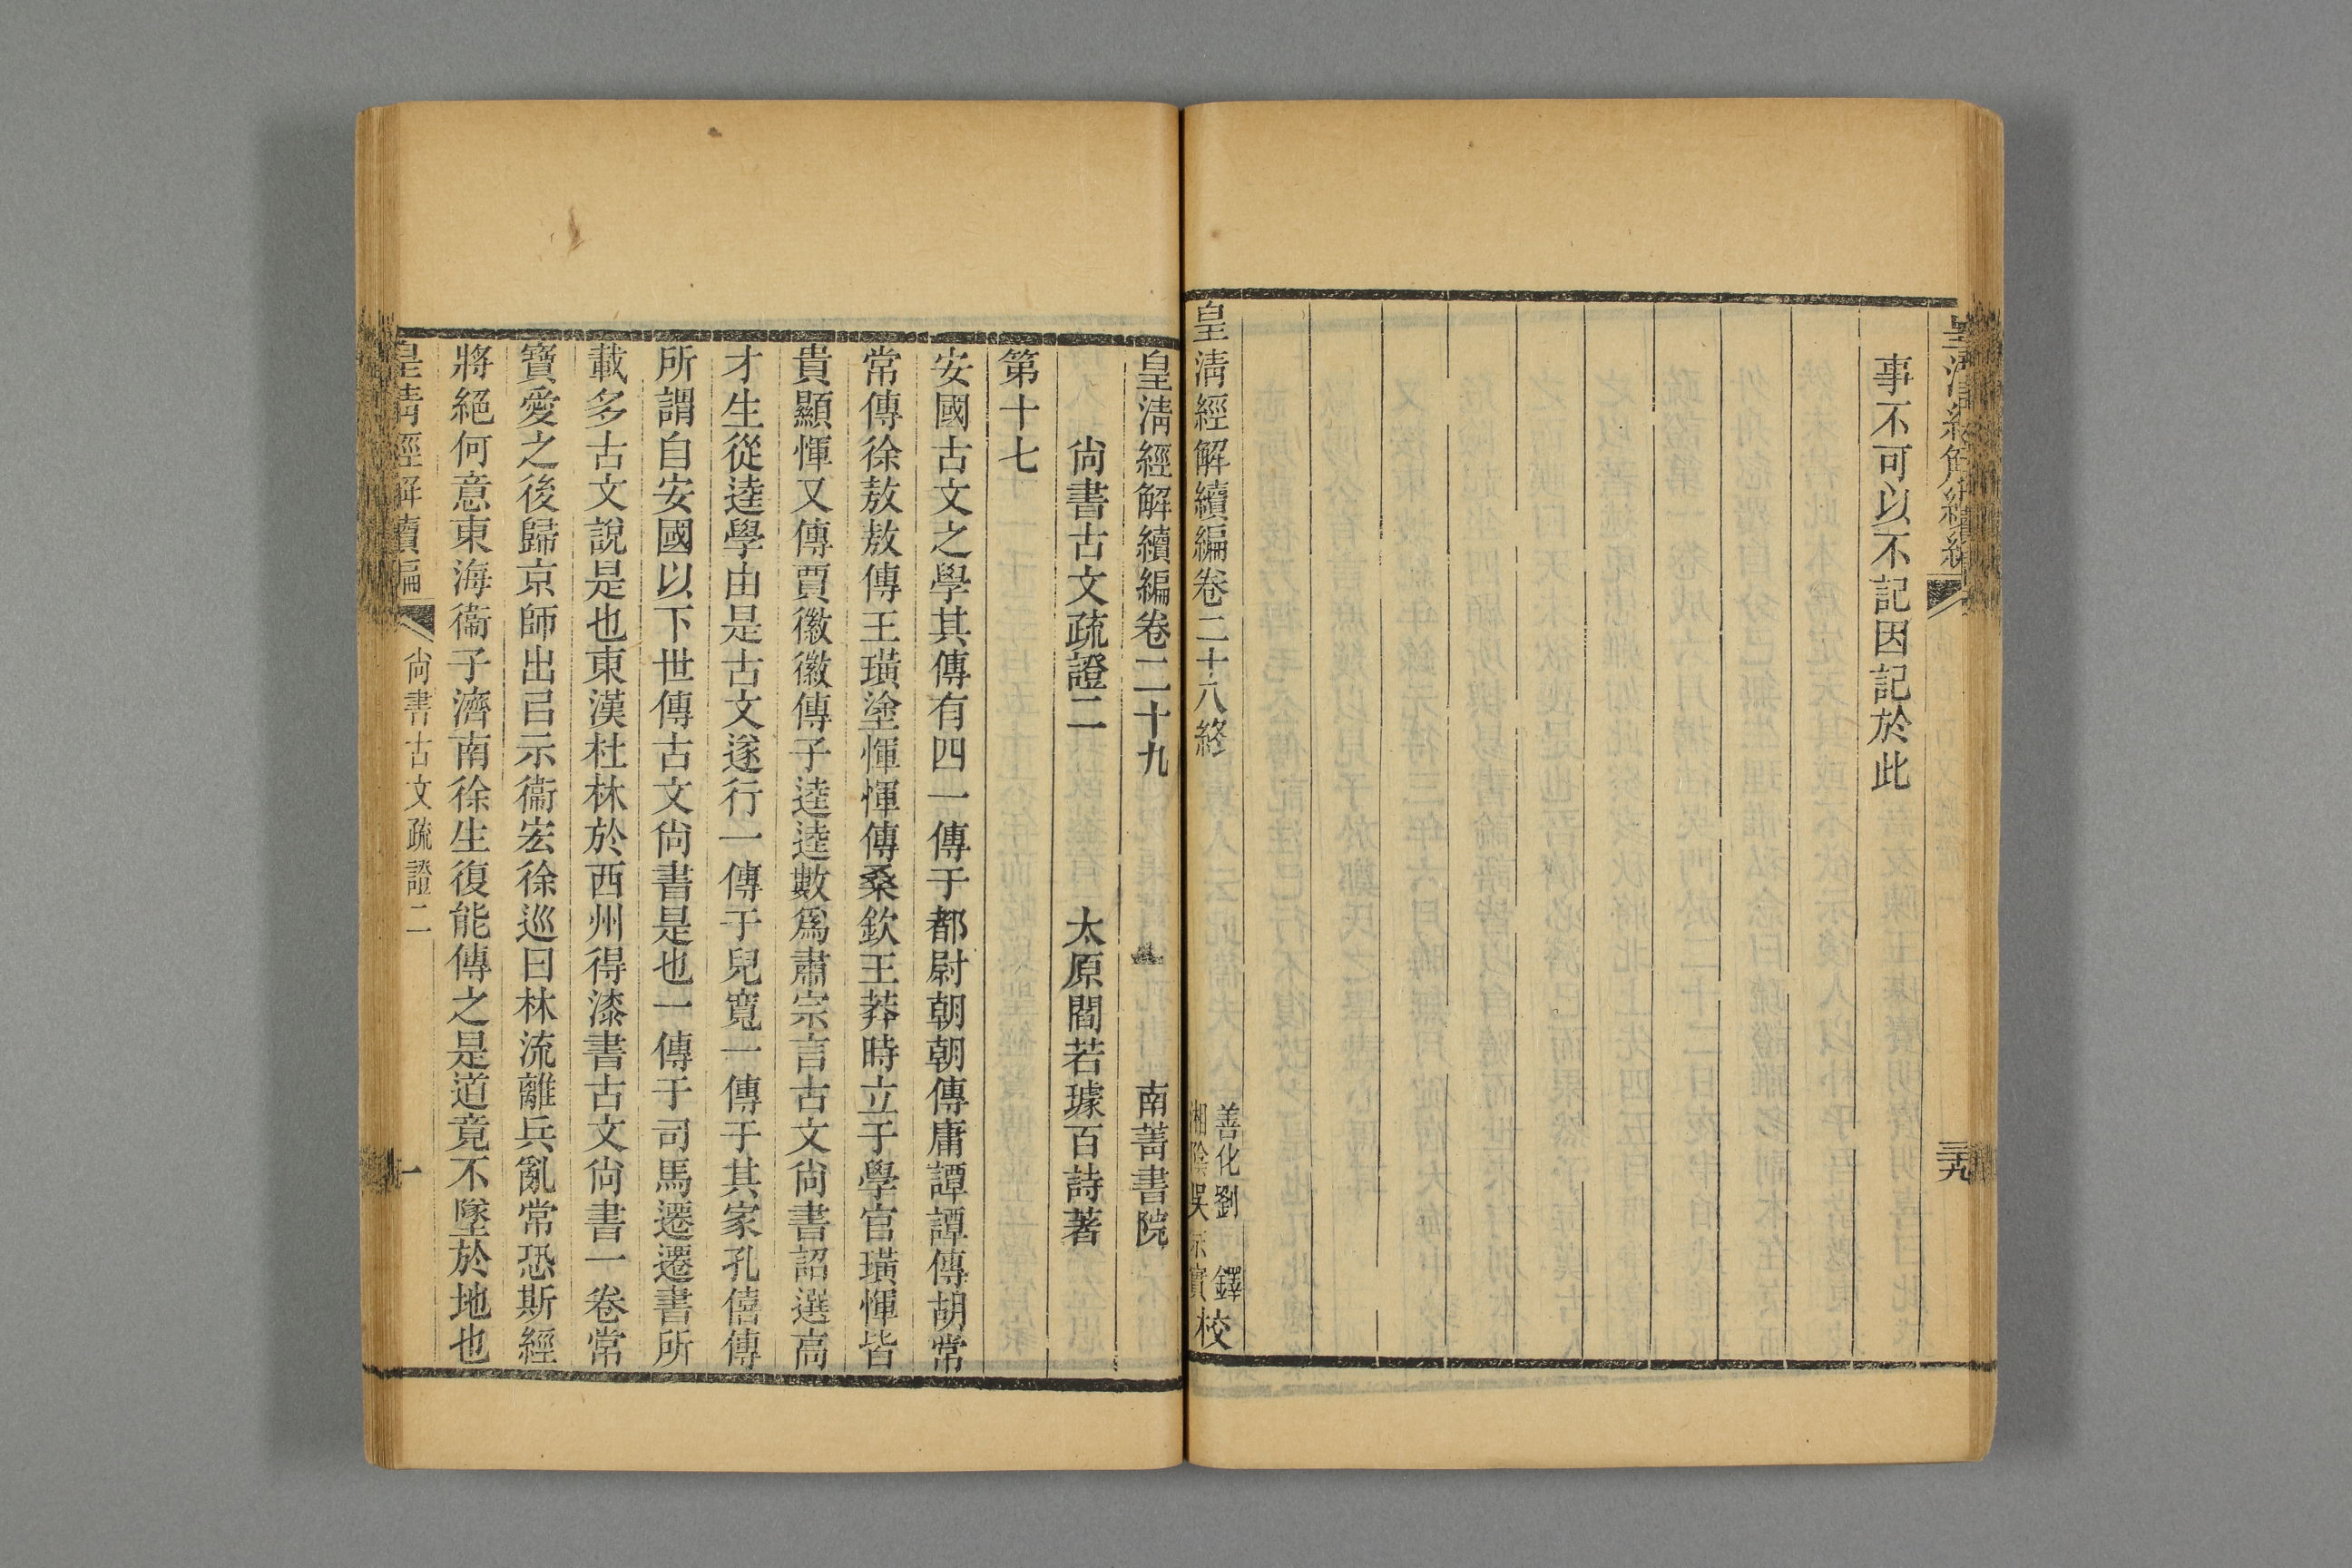 皇清經解續編
三十九
事不可以不記因記於此
皇淸經解續編卷二十八終
善化劉 鐸
湘陰吳宗實校
皇淸經解續編卷二十九 南菁書院
尙書古文疏證二 太原閻若璩百詩著
第十七
安國古文之學其傳有四一傳于都尉朝朝傳庸譚譚傳胡常
常傳徐敖敖傳王璜塗惲惲傳桑欽王莽時立于學官璜惲皆
貴顯惲又傳賈徽徽傳子逵逵數爲肅宗言古文尙書詔選高
才生從逵學由是古文遂行一傳于兒寬一傳于其家孔僖傳
所謂自安國以下世傳古文尙書是也一傳于司馬遷遷書所
載多古文說是也東漢杜林於西州得漆書古文尙書一卷常
寶愛之後歸京師出㠯示衞宏徐巡曰林流離兵亂常恐斯經
將絕何意東海衞子濟南徐生復能傳之是道竟不墜於地也
皇淸經解續編
尙書古文疏證二
一